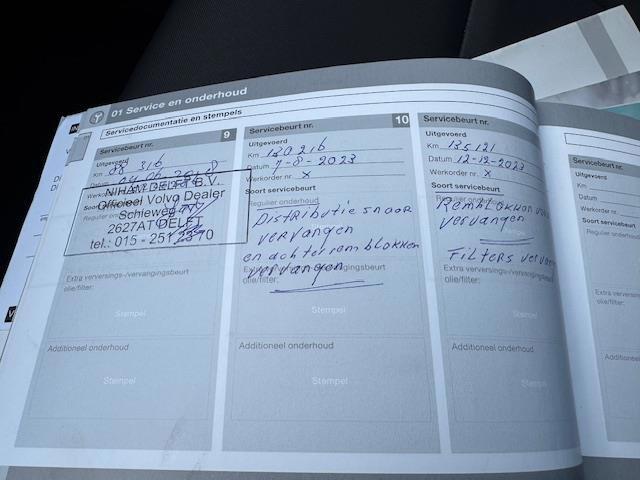 01 Service en onderhoud
Servicedocumentatie en stempels
Servicebeurt nr. 9
Uitgevoerd
Km 88 316
Datum
Werkorder nr.
NIHAM DELFT B.V.
Officieel Volvo Dealer
Schieweg
2627AT DELFT
tel.: 015 -
Extra verversings-/vervangingsbeurt
olie/filter:
Stempel
Additioneel onderhoud
Stempel
Servicebeurt nr. 10
Uitgevoerd
Km 130216
Datum 7-8-2023
Werkorder nr. x
Soort servicebeurt
Regulier onderhoud:
Distributie snaar
vervangen
en achter remblokken
vervangen
Extra verversings-/vervangingsbeurt
olie/filter:
Stempel
Additioneel onderhoud
Stempel
Servicebeurt nr.
Uitgevoerd
Km 135121
Datum 12-12-2023
Werkorder nr. x
Soort servicebeurt
Regulier onderhoud:
Remblokken
vervangen
Filters
Extra verversings-/vervangingsbeurt
olie/filter:
Stempel
Additioneel onderhoud
Stempel
Servicebeurt nr.
Uitgevoerd
Km
Datum
Werkorder nr.
Soort
Regulier onderhoud
Extra
olie/filter:
Additioneel